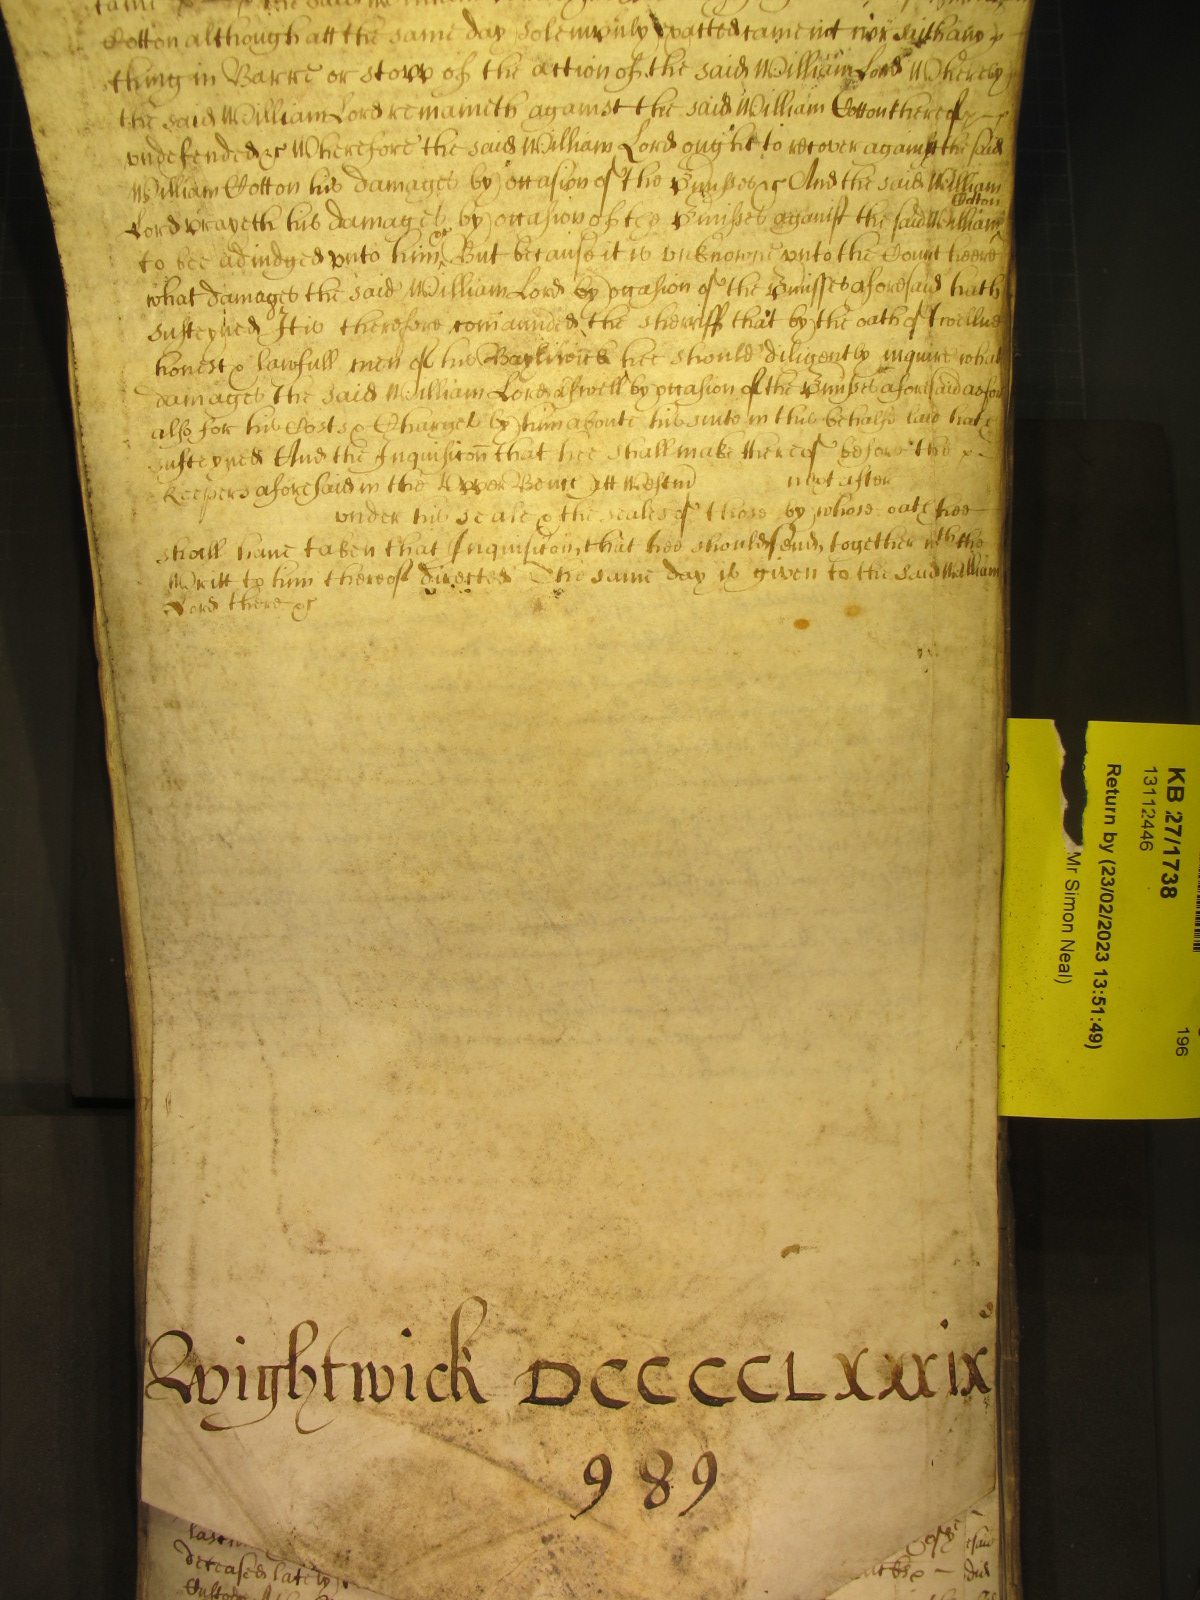 Cotton although att the same day solemnly exacted came not nor said any
thing in Barre or stopp of the action of the said William Lord Whereby
the said William Lord remaineth against the said William Cotton thereof
undefended &c Wherefore the said William Lord ought to recover against the said
William Cotton his damages by occasion of the Pmisses &c And the said William
Lord prayeth his damages by occasion of the Pmisses against the said William Cotton
to bee adiudged unto him &c But because it is unknowne unto the Court heere
what damages the said William Lord by occasion of the Pmisses aforesaid hath
susteyned It is therefore comaunded the sheriff that by the oath of twelue
honest & lawfull men of his Bayliwick hee should diligently inquire what
damages the said William Lord aswell by occasion of the Pmisses aforesaid as for
also for his Costs & Charges by him aboute his suite in this behalfe laid hath
susteyned And the Inquisicon that hee shall make thereof before the
Keepers aforesaid in the Upper Bench att Westm next after
under his seale & the seales of those by whose oath hee
shall haue taken that Inquisicon, that hee should send, together wth the
Writt to him thereof directed The same day is given to the said William
Lord there &c
Wightwick DCCCCLXXXIX
989
deceased lately
KB 27/1738
13112446
196
Return by (23/02/2023 13:51:49)
Mr Simon Neal)